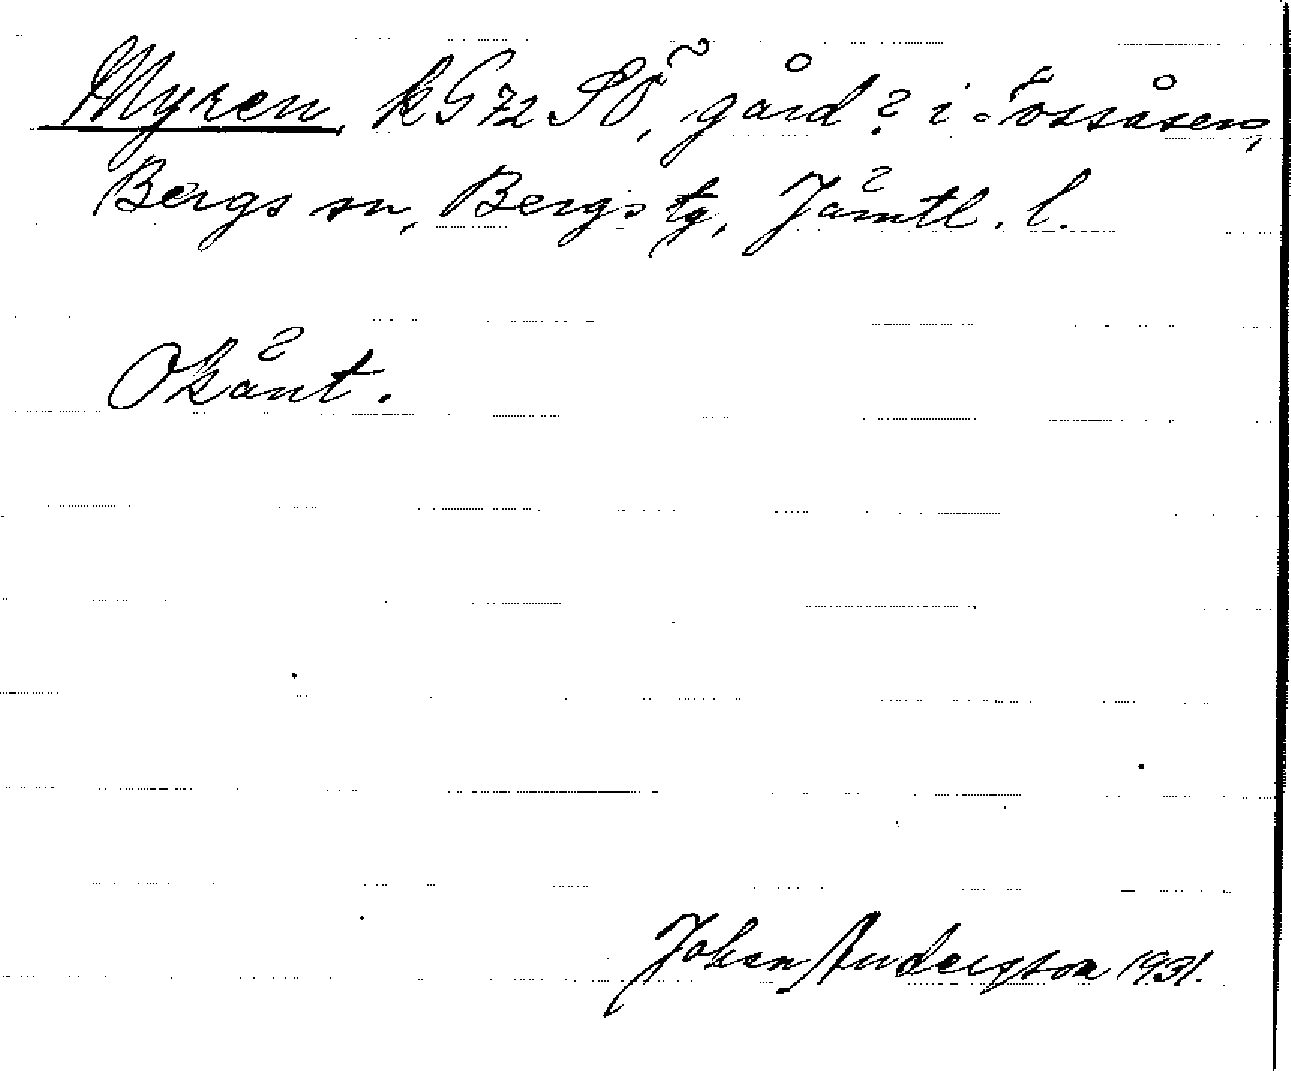 Myren kG72SÖ, gård? i Tossåsen,
Bergs sn, Bergs tg, Jämtl. l.
Okänt.
Johan Andersson 1931.